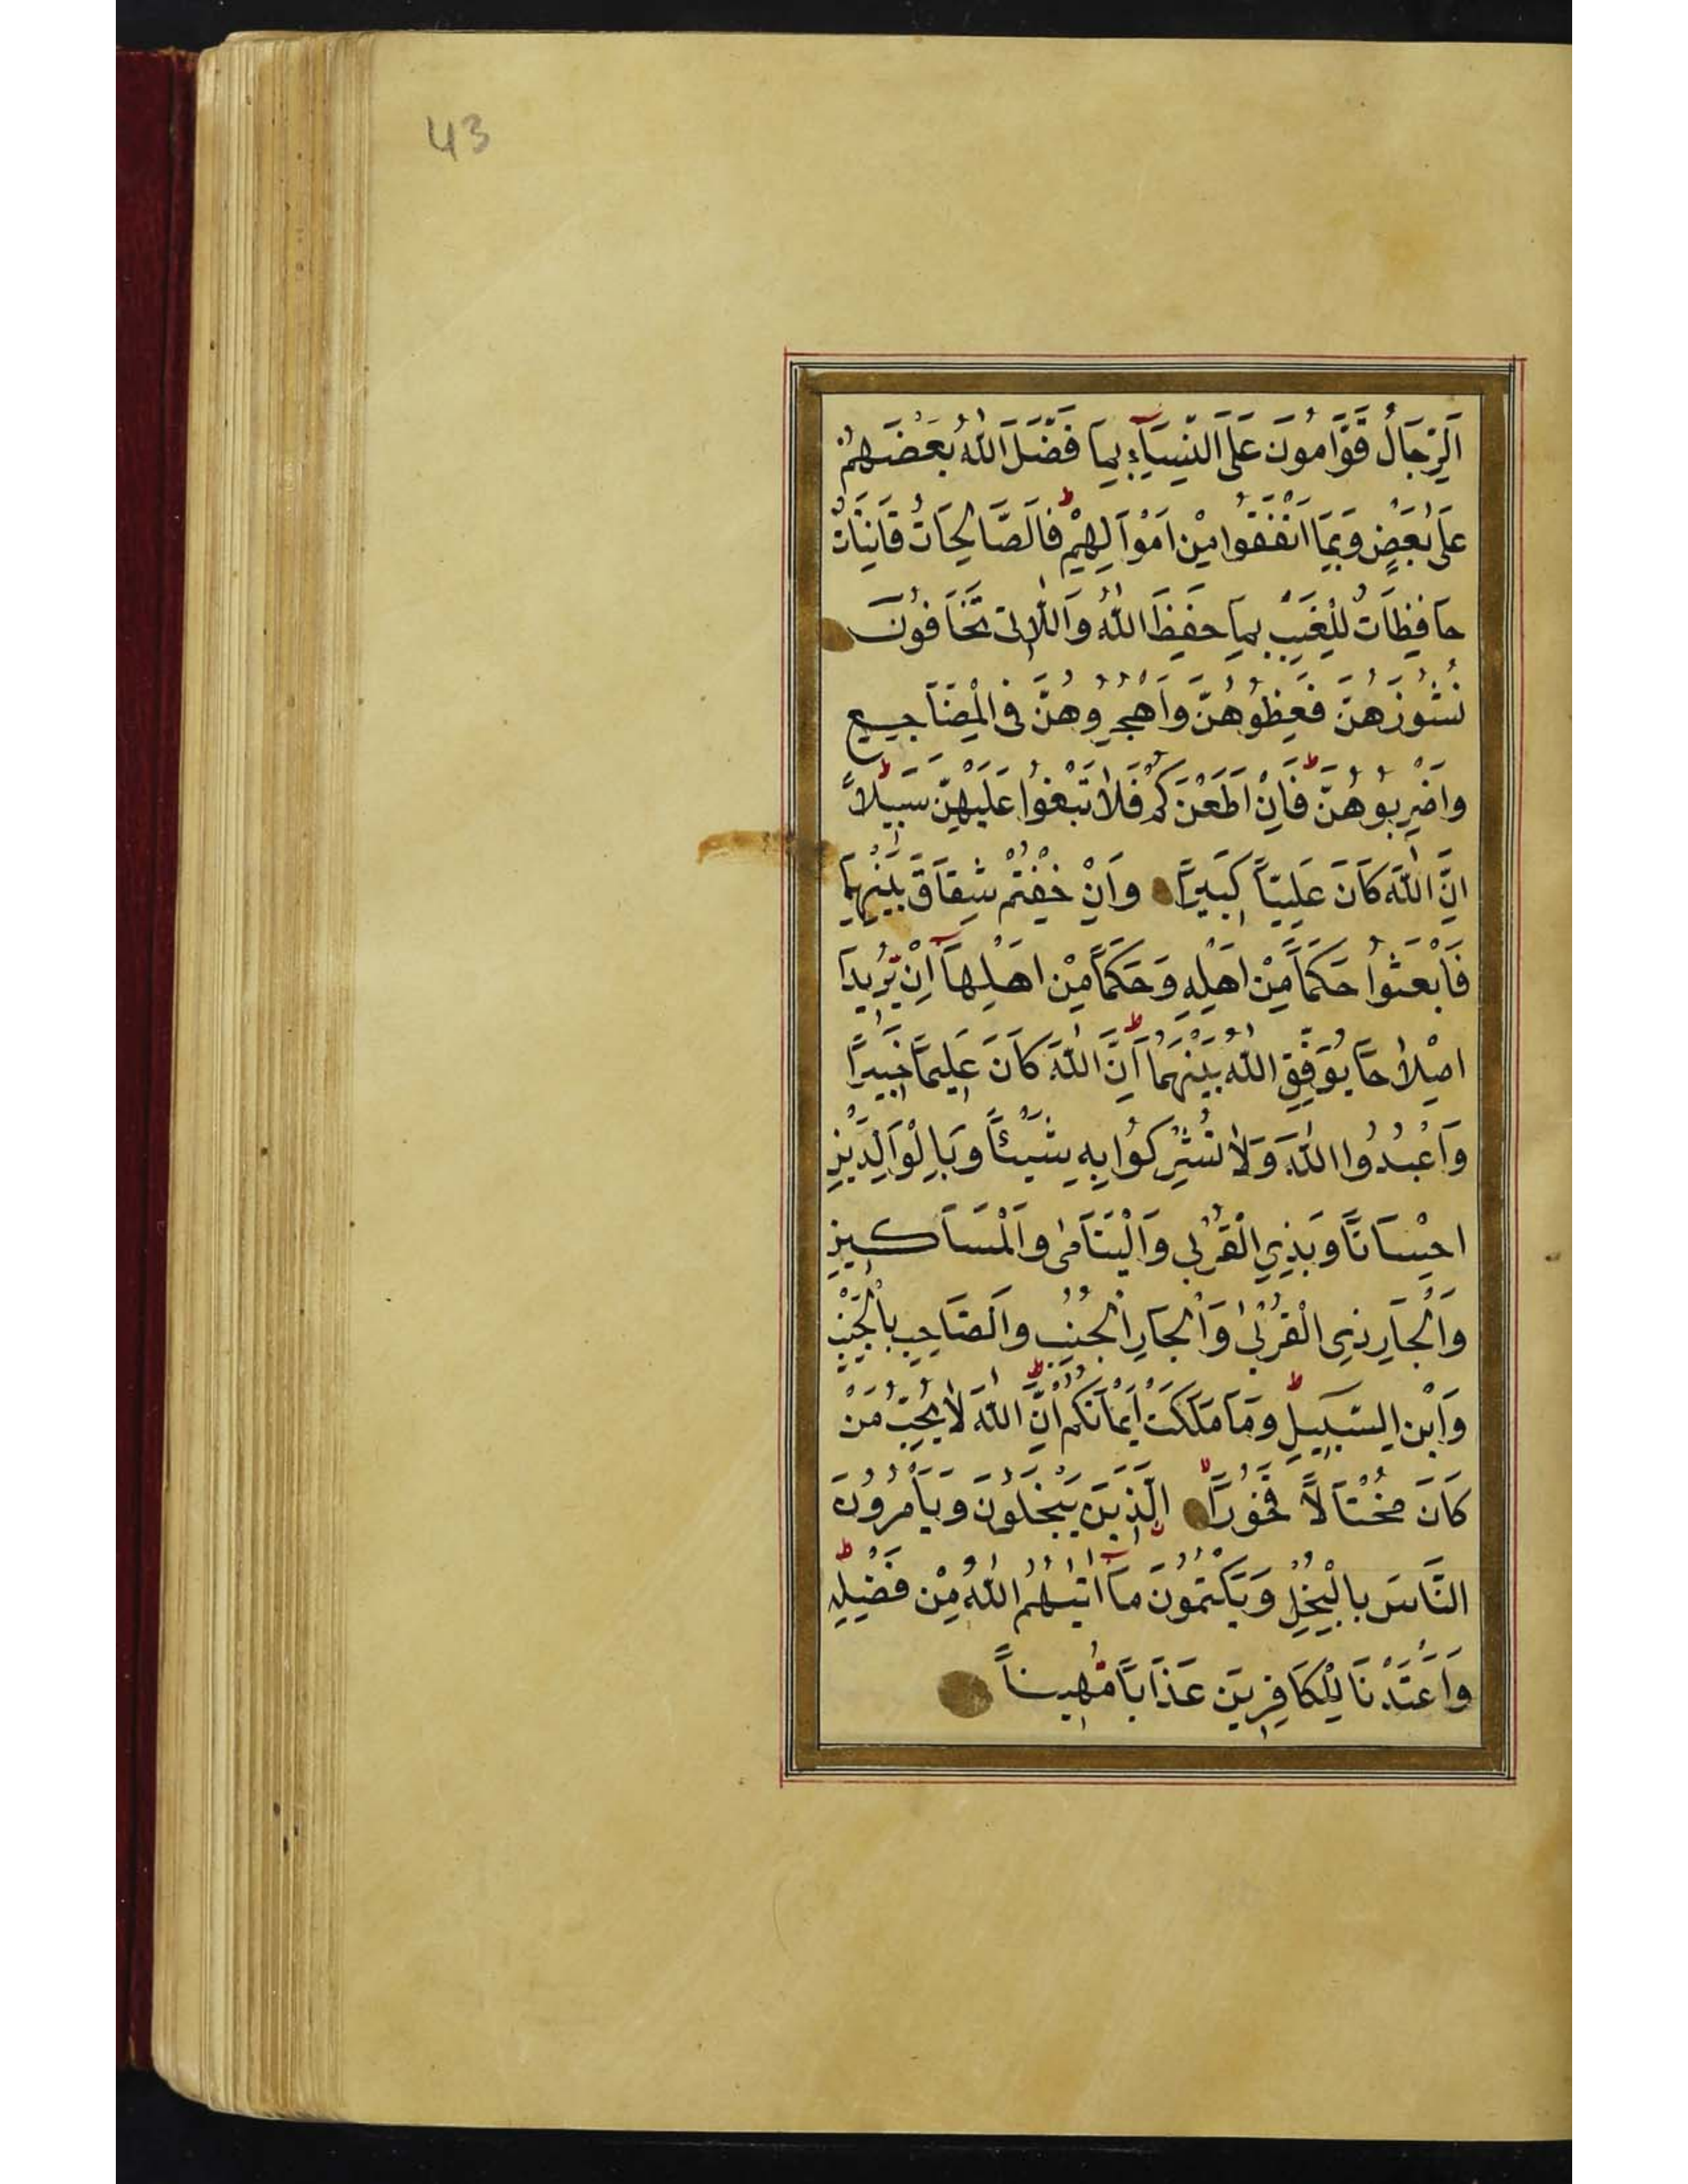 43
اَلرِّجَالُ قَوَّامُونَ عَلَى النِّسَآءِ بِمَا فَضَّلَ اللهُ بَعْضَهُمْ
عَلَى بَعْضٍ وَبِمَا اَنْفَقُوا مِنْ اَمْوَالِهِمْ ط فَالصَّالِحَاتُ قَانِتَاتٌ
حَافِظَاتٌ لِلْغَيْبِ بِمَا حَفِظَ اللهُ وَاللَّاتِى تَخَافُونَ
نُشُوزَهُنَّ فَعِظُوهُنَّ وَاهْجُرُوهُنَّ فِى الْمَضَاجِعِ
وَاضْرِبُوهُنَّ ط فَاِنْ اَطَعْنَكُمْ فَلَا تَبْغُوا عَلَيْهِنَّ سَبِيلًا ط
اِنَّ اللهَ كَانَ عَلِيًّا كَبِيرًا وَاِنْ خِفْتُمْ شِقَاقَ بَيْنِهِمَا
فَابْعَثُوا حَكَمًا مِنْ اَهْلِهِ وَحَكَمًا مِنْ اَهْلِهَآ اِنْ يُرِيدَا
اِصْلَاحًا يُوَفِّقِ اللهُ بَيْنَهُمَا ط اِنَّ اللهَ كَانَ عَلِيمًا خَبِيرًا
وَاعْبُدُوا اللهَ وَلَا تُشْرِكُوا بِهِ شَيْئًا وَبِالْوَالِدَيْنِ
اِحْسَانًا وَبِذِي الْقُرْبٰى وَالْيَتَامٰى وَالْمَسَاكِينِ
وَالْجَارِ ذِي الْقُرْبٰى وَالْجَارِ الْجُنُبِ وَالصَّاحِبِ بِالْجَنْبِ
وَابْنِ السَّبِيلِ ط وَمَا مَلَكَتْ اَيْمَانُكُمْ ط اِنَّ اللهَ لَا يُحِبُّ مَنْ
كَانَ مُخْتَالًا فَخُورًا لا الَّذِينَ يَبْخَلُونَ وَيَأْمُرُونَ
النَّاسَ بِالْبُخْلِ وَيَكْتُمُونَ مَآ اٰتٰيهُمُ اللهُ مِنْ فَضْلِهِ ط
وَاَعْتَدْنَا لِلْكَافِرِينَ عَذَابًا مُهِينًا